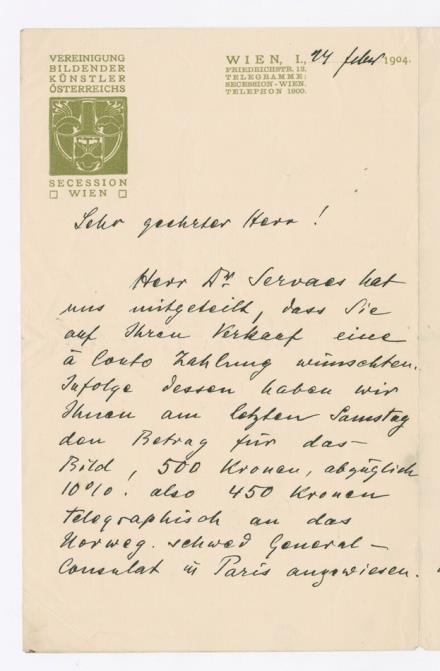 VEREINIGUNG
BILDENDER
KÜNSTLER
ÖSTERREICHS
SECESSION
WIEN
WIEN, I., 24 feber 1904.
FRIEDRICHSTR. 12.
TELEGRAMME:
SECESSION-WIEN.
TELEPHON 1900.
Sehr geehrter Herr!
Herr Dr. Servaes hat
uns mitgeteilt, dass Sie
auf Ihren Verkauf eine
à Conto Zahlung wünschten.
Infolge dessen haben wir
Ihnen am letzten Samstag
den Betrag für das
Bild, 500 Kronen, abzüglich
10%. also 450 Kronen
telegraphisch an das
Norweg. schwed General-
Consulat in Paris angewiesen.